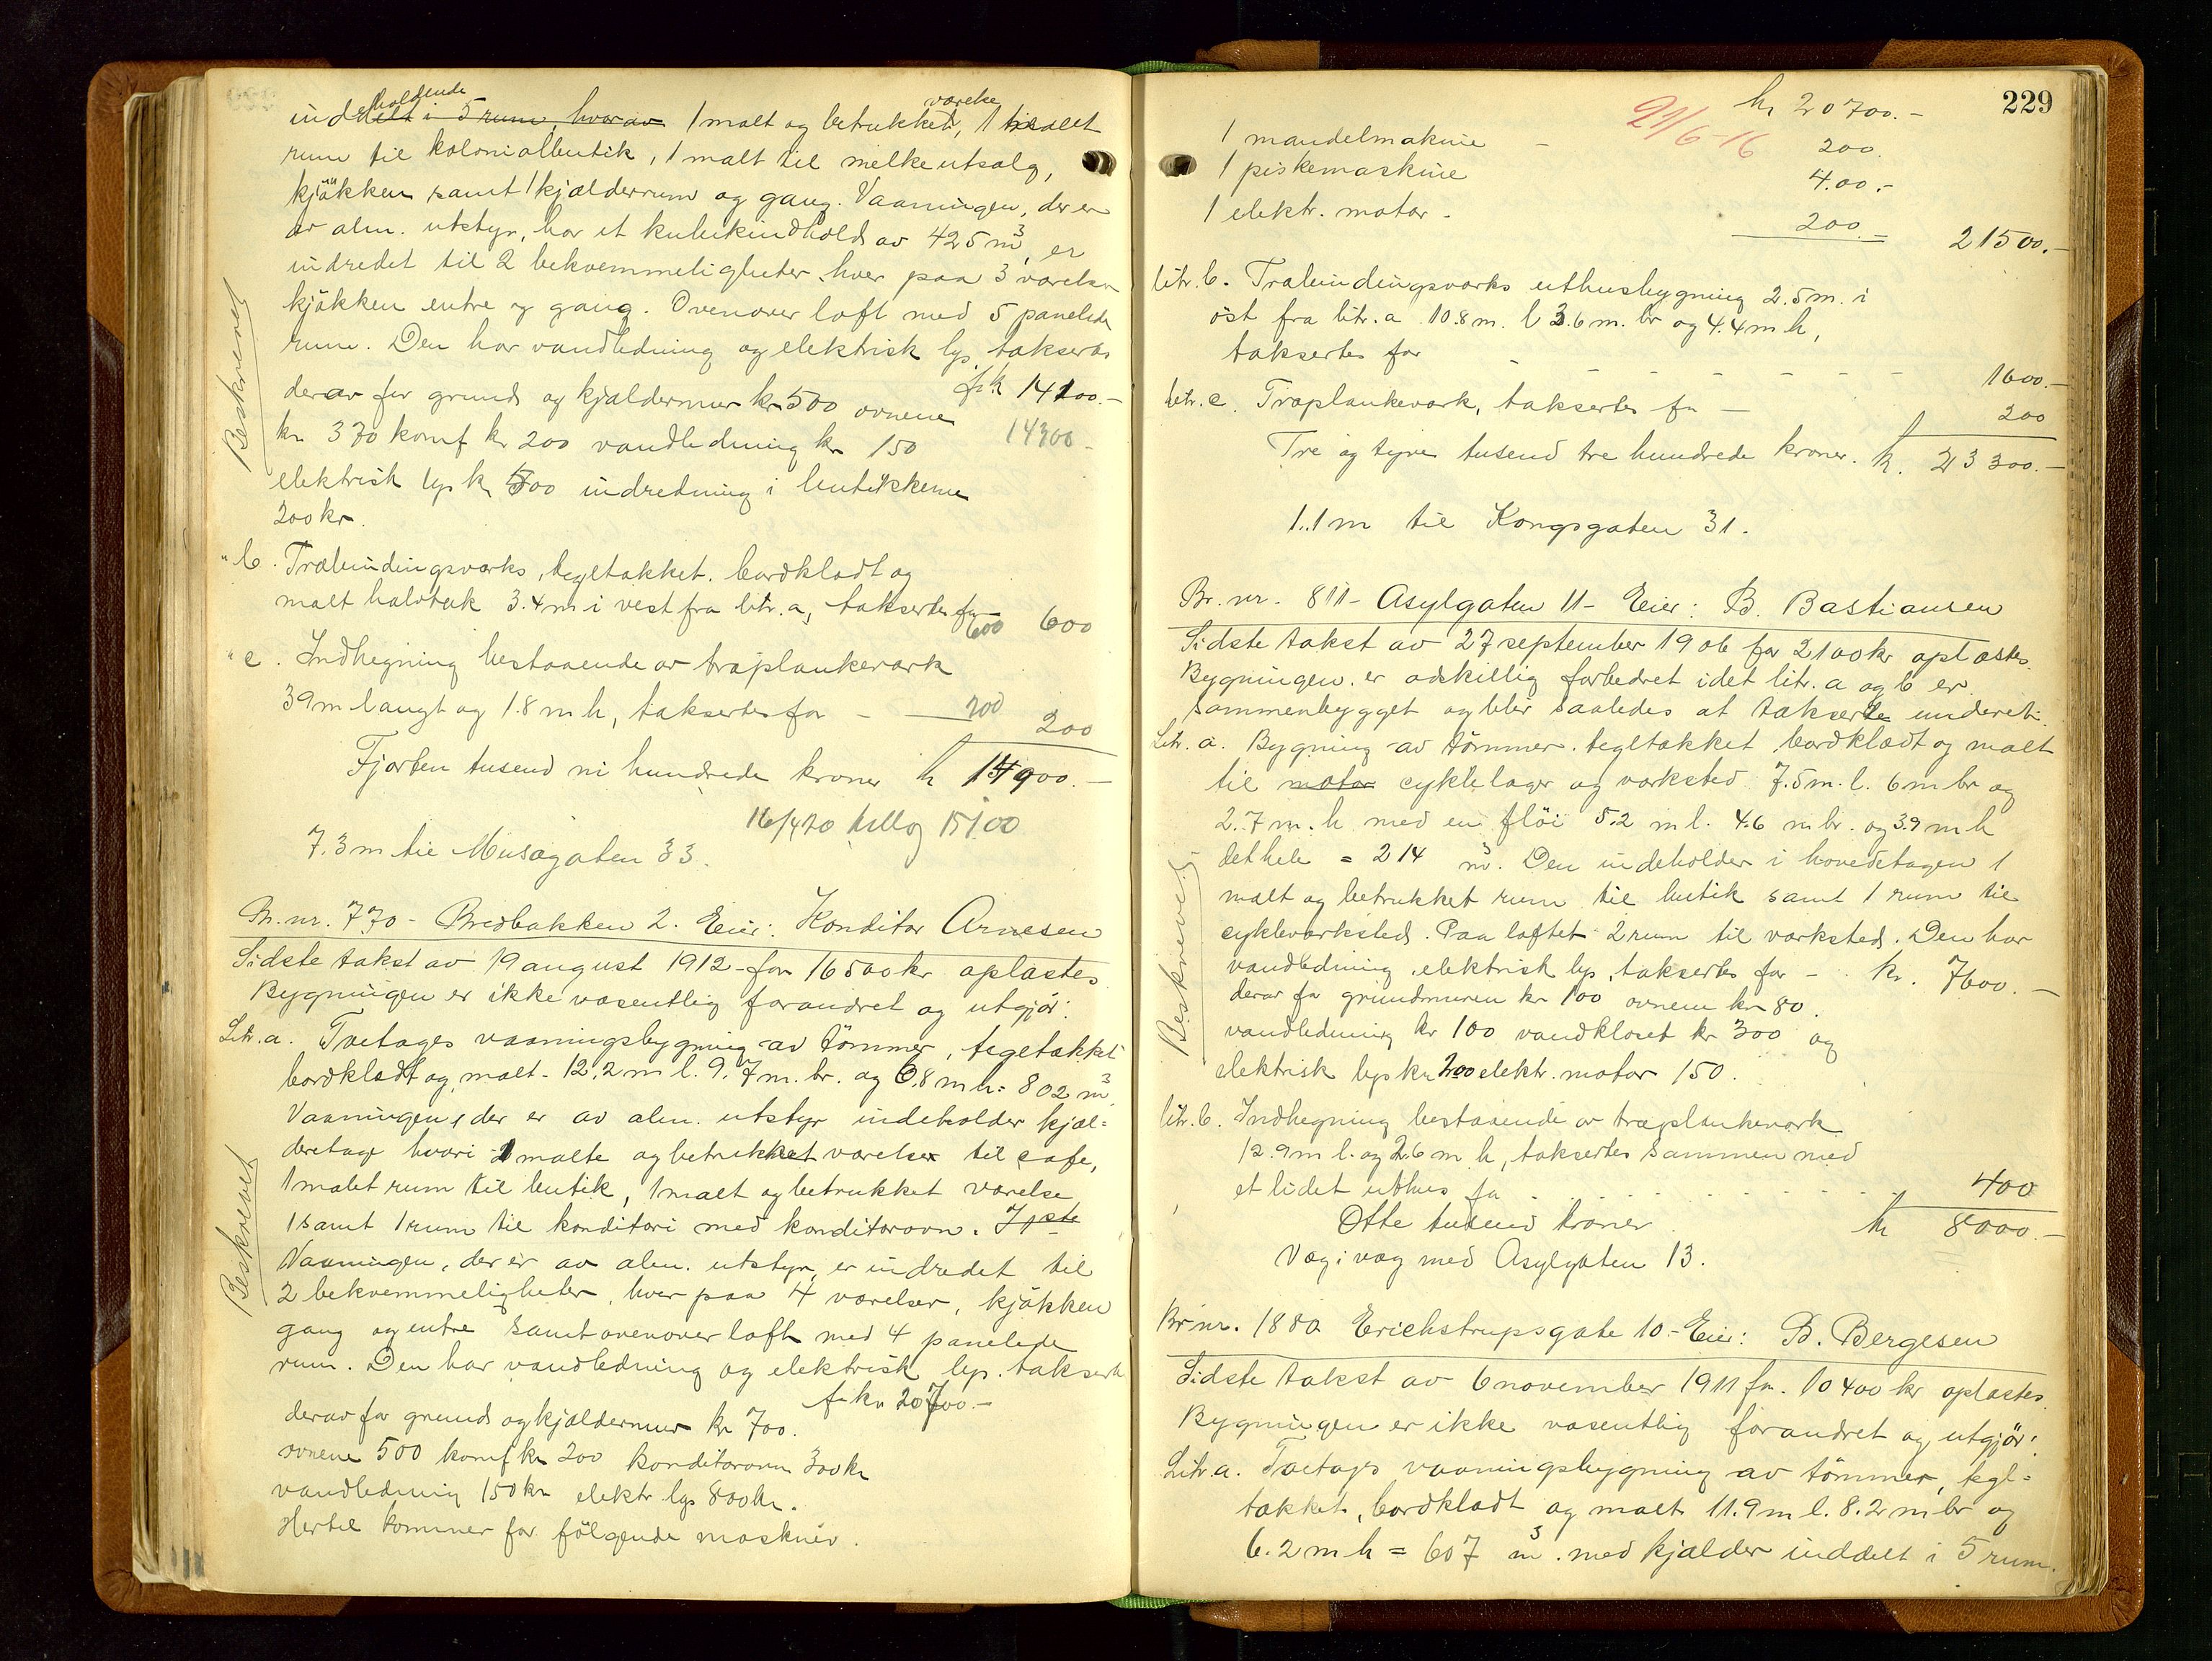 holdende
inddelt i 5 rum, hvorav 1 malt og betrukket, værelse 1 malt
rum til kolonialbutik, 1 malt til melkeutsalg,
kjøkken samt 1 kjælderrum og gang. Vaaningen, der er
av alm. utstyr, har et kubikindhold av 425 m³, er
indredet til 2 bekvemmeligheter, hver paa 3 værelser
kjøkken entre og gang. Ovenover loft med 5 panelede
rum. Den har vandledning og elektrisk lys, taksertes
for kr 14100.-
derav for grund og kjældermur kr 500 ovnene
14300-
kr 330 komf kr 200 vandledning kr 150
elektrisk lys kr 500 indredning i butikkerne
200 kr.
Beskrevet
" b. Træbindingsverks, tegltækket, bordklædt og
malt halvtak 3.4 m i vest fra litr. a, taksertes for 600 600
" c. Indhegning bestaaende av træplankeverk
39 m langt og 1.8 m h, taksertes for - 200 200
Fjorten tusend ni hundrede kroner kr 14900.-
16/4 20 tillæg 15100
7.3 m til Musægaten 33.
Br. nr. 770 - Bredbakken 2. Eier: Konditor Arnesen
Sidste takst av 19 august 1912 - for 16500 kr oplæstes.
Bygningen er ikke væsentlig forandret og utgjør:
Litr. a. Toetages vaaningsbygning av tømmer, tegltækket
bordklædt og malt - 12.2 m l. 9.7 m. br. og 6.8 m h = 802 m³
Vaaningen, der er av alm. utstyr indeholder kjæl=
deretage hvori 1 malte og betrukket værelser til cafe,
1 malet rum til butik, 1 malt og betrukket værelse
1 samt 1 rum til konditori med konditorovn. I 1ste
Vaaningen, der er av alm. utstyr, er indredet til
2 bekvemmeligheter, hver paa 4 værelser, kjøkken
gang og entre samt ovenover loft med 4 panelede
rum. Den har vandledning og elektrisk lys. taksertes
for kr 20700.-
derav for grund og kjældermur kr 700.
ovnene 500 komf kr 200 konditorovn 300 kr
vandledning 150 kr elektr lys 800 kr.
Hertil kommer for følgende maskiner.
Beskrevet
229
kr 20700.-
21/6-16
1 mandelmaskine - 200.
1 piskemaskine 400.-
1 elektr. motor - 200.= 21500.-
litr. b. Træbindingsverks uthusbygning 2.5 m. i
øst fra litr. a 10.8 m. l 3.6 m. br og 4.4 m h,
taksertes for - - - - - - - 1600.-
litr. c. Træplankeverk, taksertes for - 200
Tre og tyve tusend tre hundrede kroner. kr. 23300.-
1.1 m til Kongsgaten 31.
Br. nr. 811 - Asylgaten 11 - Eier: B. Bastiansen
Sidste takst av 27 september 1906 for 2100 kr oplæstes.
Bygningen er adskillig forbedret idet litr. a og b er
sammenbygget og blir saaledes at taksere under et.
Litr. a. Bygning av tømmer, tegltækket bordklædt og malt
til motor cykkelager og verksted 7.5 m. l. 6 m br og
2.7 m. h med en fløi 5.2 m l. 4.6 m br. og 3.9 m h
det hele = 214 m³. Den indeholder i hovedetagen 1
malt og betrukket rum til butik samt 1 rum til
cykleverksted. Paa loftet 2 rum til verksted. Den har
vandledning, elektrisk lys, taksertes for - kr. 7600.-
derav for grundmuren kr 100 ovnene kr 80.
vandledning kr 100 vandkloset kr 300 og
elektrisk lys kr 200 elektr. motor 150.
Beskrevet
litr. b. Indhegning bestaaende av træplankeverk
12.9 m l. og 2.6 m h, taksertes sammen med
et lidet uthus for - - - - - - - 400
Otte tusend kroner kr 8000.-
Væg i væg med Asylgaten 13.
Br. nr. 1880 Erichstrupsgate 10 - Eier: B. Bergesen
Sidste takst av 6 november 1911 for 10400 kr oplæstes.
Bygningen er ikke væsentlig forandret og utgjør:
Litr. a. Toetages vaaningsbygning av tømmer, tegl=
tækket, bordklædt og malt 11.9 m l. 8.2 m br og
6.2 m h = 607 m³. med kjælder inddelt i 5 rum.